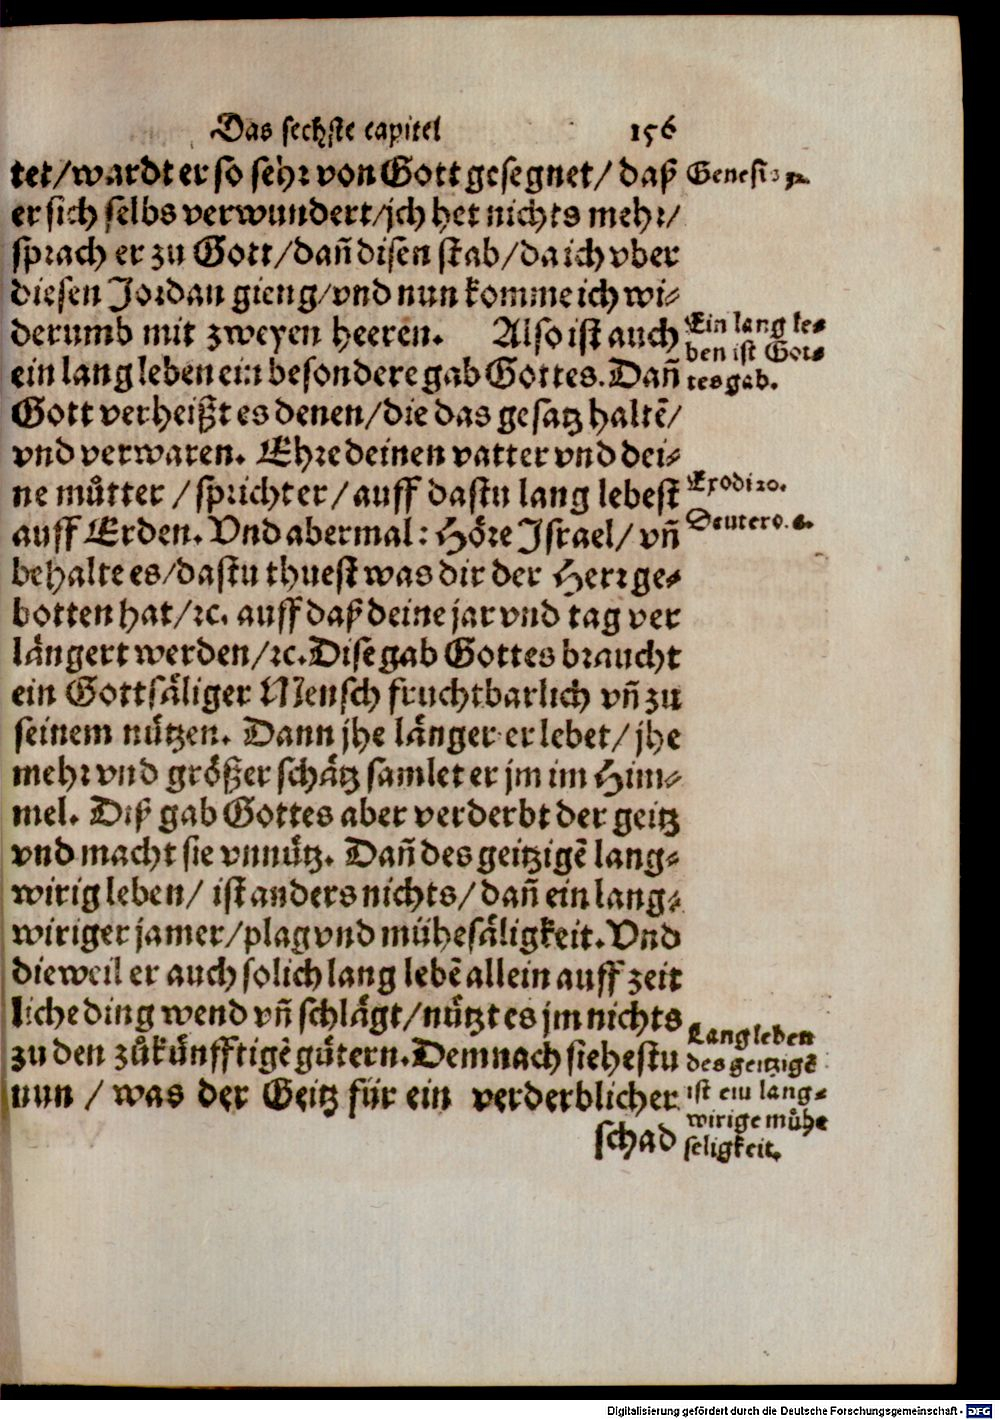 Das sechste capitel 156
tet/wardt er so sehr von Gott gesegnet/ daß
er sich selbs verwundert/jch het nichts mehr/
sprach er zu Gott/dañ disen stab/da ich vber
diesen Jordan gieng/vnd nun komme ich wi-
derumb mit zweyen heeren. Also ist auch
ein lang leben ein besondere gab Gottes. Dañ
Gott verheißt es denen/die das gesatz haltẽ/
vnd verwaren. Ehre deinen vatter vnd dei-
ne můtter /spricht er/ auff dastu lang lebest
auff Erden. Vnd abermal: Höre Jsrael/ vñ
behalte es/dastu thuest was dir der Herr ge-
botten hat/ꝛc. auff daß deine jar vnd tag ver
längert werden/ꝛc. Dise gab Gottes braucht
ein Gottsäliger Mensch fruchtbarlich vñ zu
seinem nützen. Dann jhe länger er lebet/ jhe
mehr vnd größer schätz samlet er jm im Him-
mel. Diß gab Gottes aber verderbt der geitz
vnd macht sie vnnütz. Dañ des geitzigẽ lang-
wirig leben/ ist anders nichts/ dañ ein lang-
wiriger jamer/plag vnd mühesäligkeit. Vnd
dieweil er auch solich lang lebẽ allein auff zeit
liche ding wend vñ schlägt/nützt es jm nichts
zu den zůkünfftigẽ gütern. Demnach siehestu
nun / was der Geitz für ein verderblicher
schad
Genesi: 32.
Ein lang le-
ben ist Got-
tes gab.
Exodi 20.
Deutero. 6.
Lang leben
des geitzigẽ
ist ein lang-
wirige mühe
seligkeit.
Digitalisierung gefördert durch die Deutsche Forschungsgemeinschaft - DFG